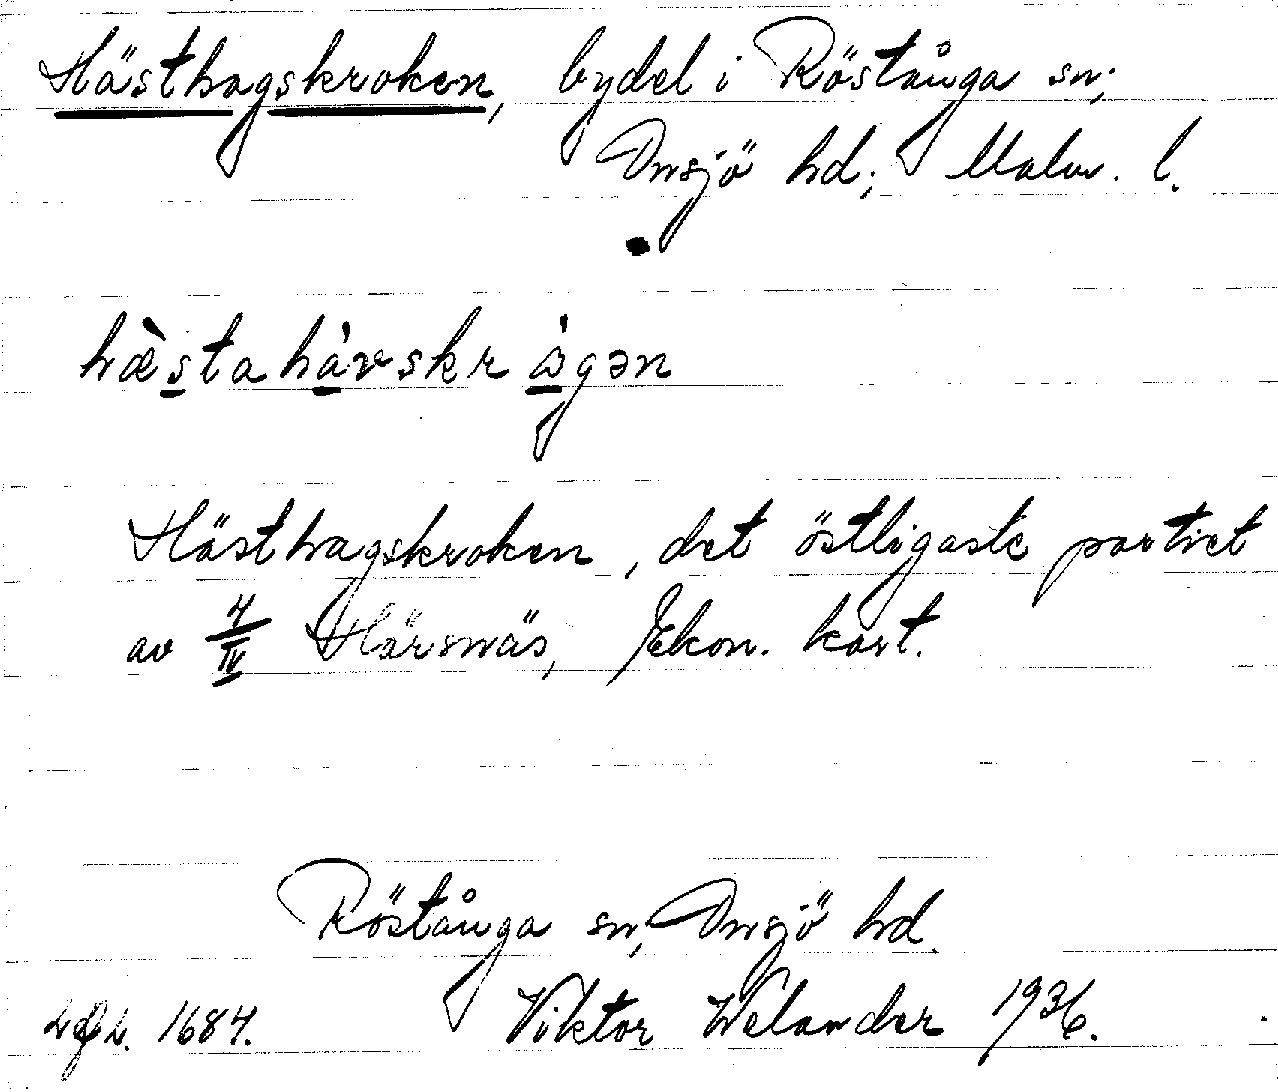 Hästhagskroken, bydel i Röstånga sn;
Onsjö hd; Malm. l.
hæ̀stahàvskrågən
Hästhagskroken, det östligaste partiet
av 4/IV Härsnäs, Ekon. kart.
Röstånga sn, Onsjö hd.
1684.
Viktor Welander 1936.